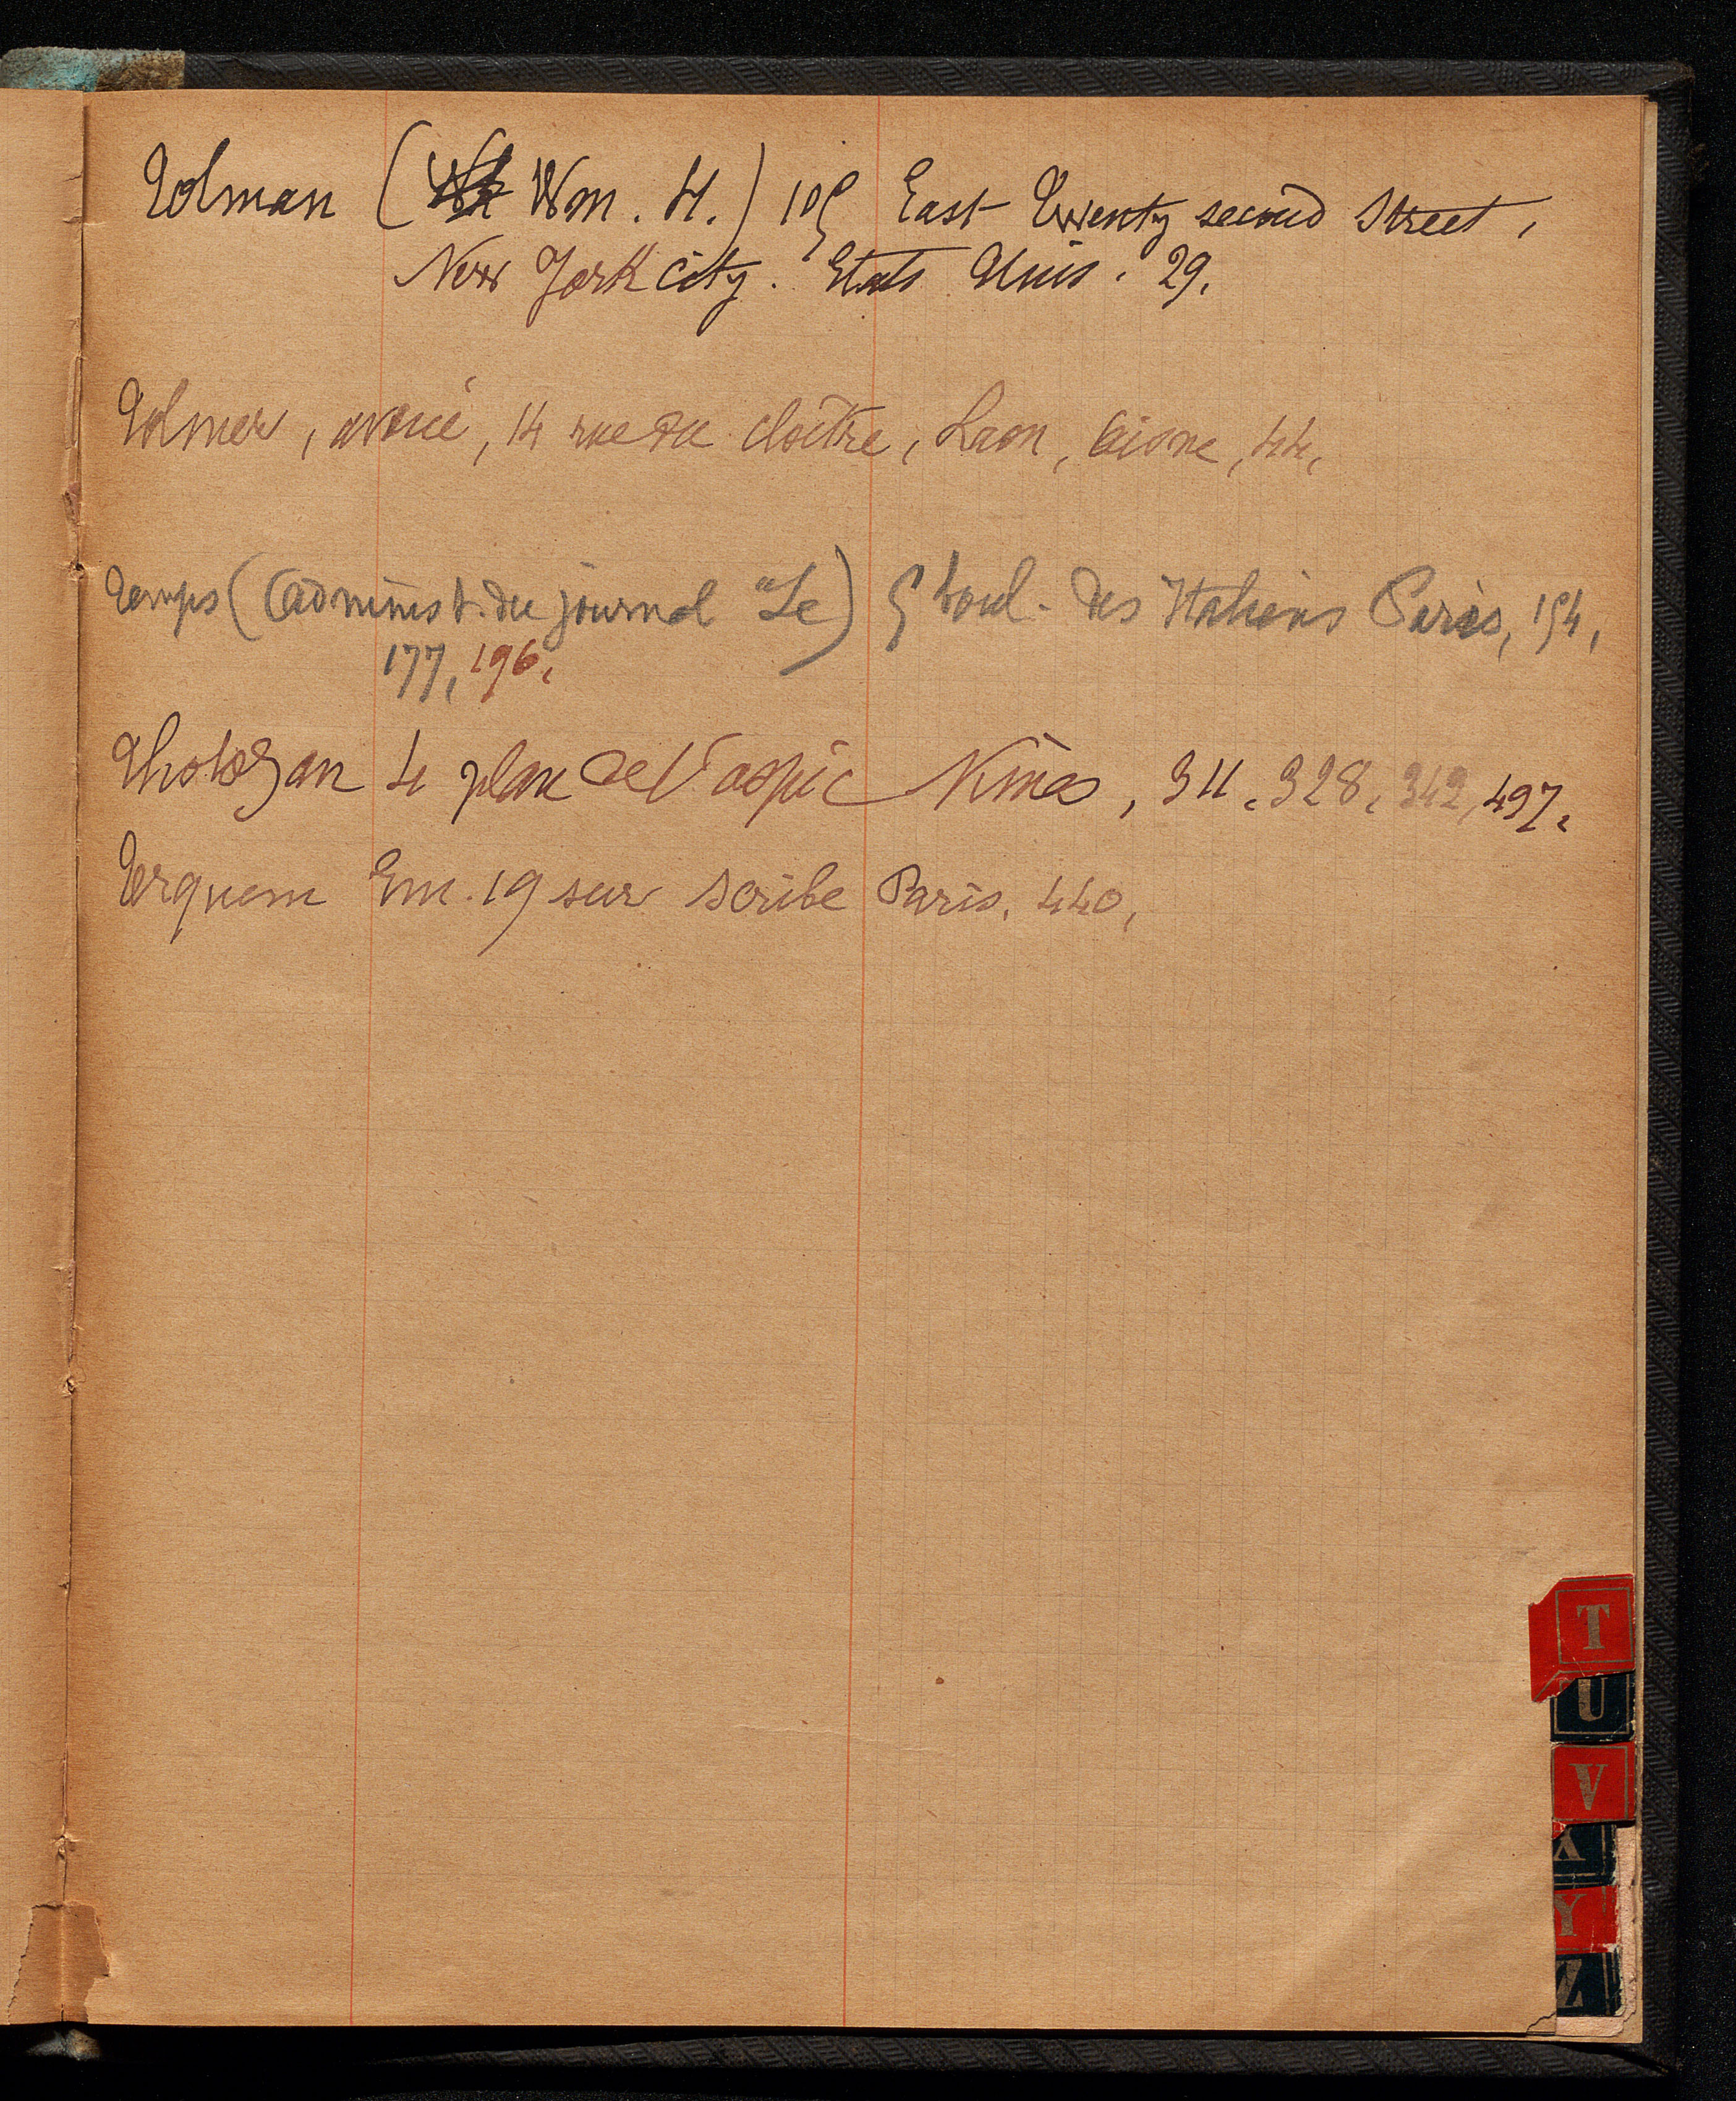 Tolman (Wm. H.) 105 East Twenty second Street,
New York city. Etats Unis. 29.
Tolmer, avoué, 14 rue du cloître, Laon, Aisne, 44,
Temps (Administ. du journal "Le) 5 boul. des Italiens Paris, 154,
177, 196,
Thotozan 4 plan de l'aspic Nimes, 311, 328, 342, 497,
Terquem Em. 19 sur Scribe Paris. 440,
T
U
V
X
Y
Z